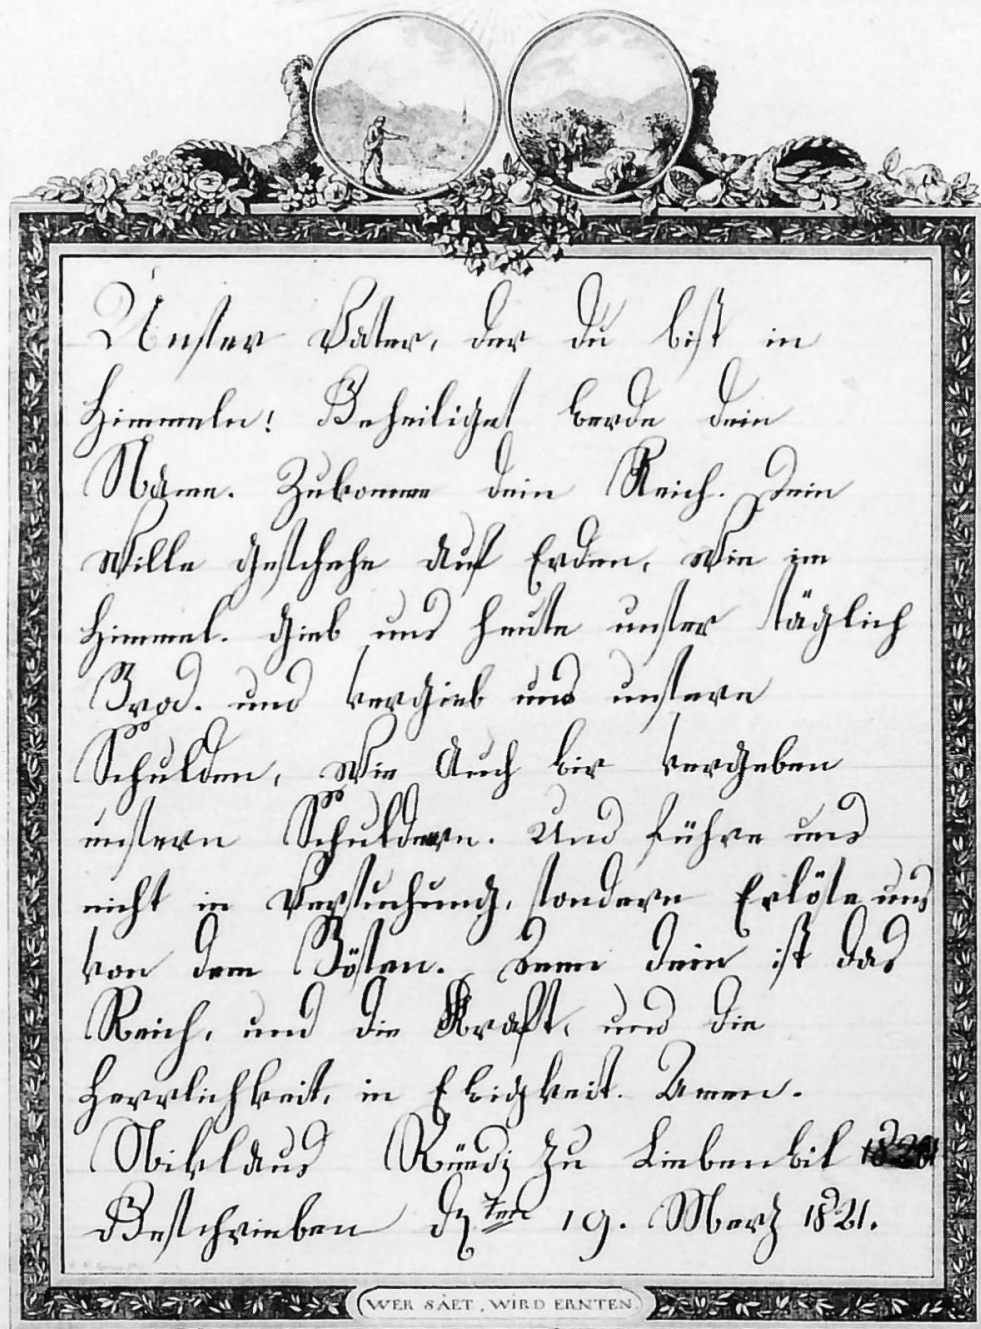 Unser Vater, der du bist in
Himmeln! Geheiliget werde dein
Name. Zukomme dein Reich. Dein
Wille geschehe auf Erden, wie im
Himmel. Gieb uns heute unser täglich
Brod. und vergieb uns unsere
Schulden, wie Auch wir vergeben
unsern Schuldern. Und führe uns
nicht in Versuchung, sondern Erlöse uns
von dem Bösen. Denn dein ist das
Reich, und die Kraft, und die
Herrlichkeit, in Ewigkeit. Amen.
Niklaus Rüedj zu Liebenwil
Geschrieben d 19. Merz 1821.
WER SÄET, WIRD ERNTEN.